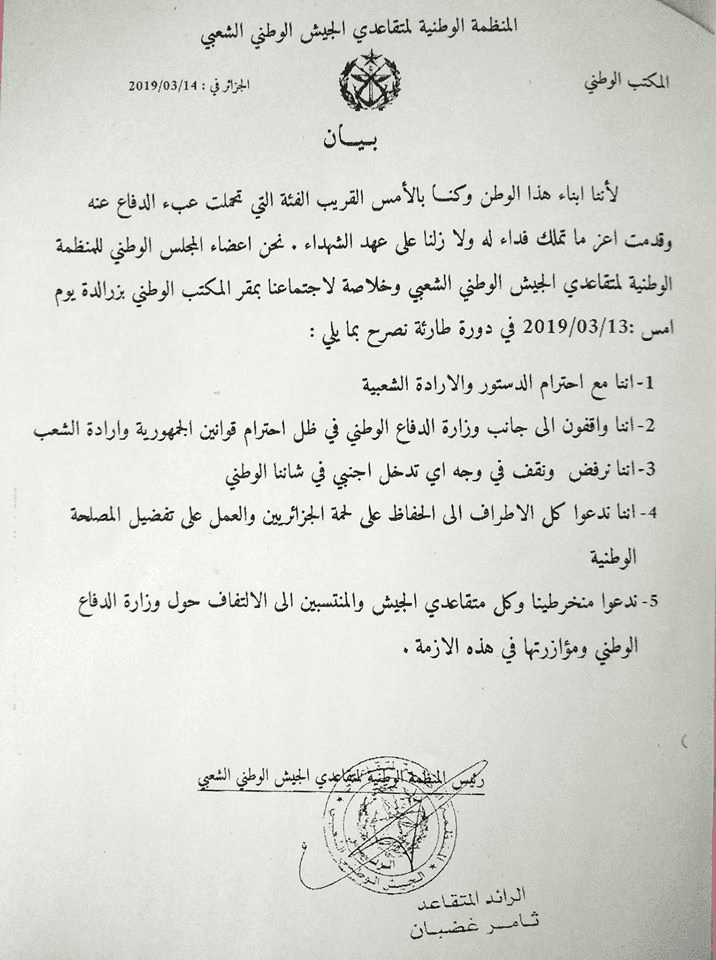 المنظمة الوطنية لمتقاعدي الجيش الوطني الشعبي
المكتب الوطني
الجزائر في : 2019/03/14
بيـــان
لأننا ابناء هذا الوطن وكنـا بالأمس القريب الفئة التي تحملت عبء الدفاع عنه
وقدمت اعز ما تملك فداء له ولا زلنا على عهد الشهداء . نحن اعضاء المجلس الوطني للمنظمة
الوطنية لمتقاعدي الجيش الوطني الشعبي وخلاصة لاجتماعنا بمقر المكتب الوطني بزرالدة يوم
امس :2019/03/13 في دورة طارئة نصرح بما يلي :
1- اننا مع احترام الدستور والارادة الشعبية
2- اننا واقفون الى جانب وزارة الدفاع الوطني في ظل احترام قوانين الجمهورية وارادة الشعب
3- اننا نرفض ونقف في وجه اي تدخل اجنبي في شاننا الوطني
4- اننا ندعوا كل الاطراف الى الحفاظ على لحمة الجزائريين والعمل على تفضيل المصلحة
الوطنية
5- ندعوا منخرطينا وكل متقاعدي الجيش والمنتسبين الى الالتفاف حول وزارة الدفاع
الوطني ومؤازرتها في هذه الازمة .
رئيس المنظمة الوطنية لمتقاعدي الجيش الوطني الشعبي
الجيش الوطني الشعبي
الرائد المتقاعد
ثامر غضبان